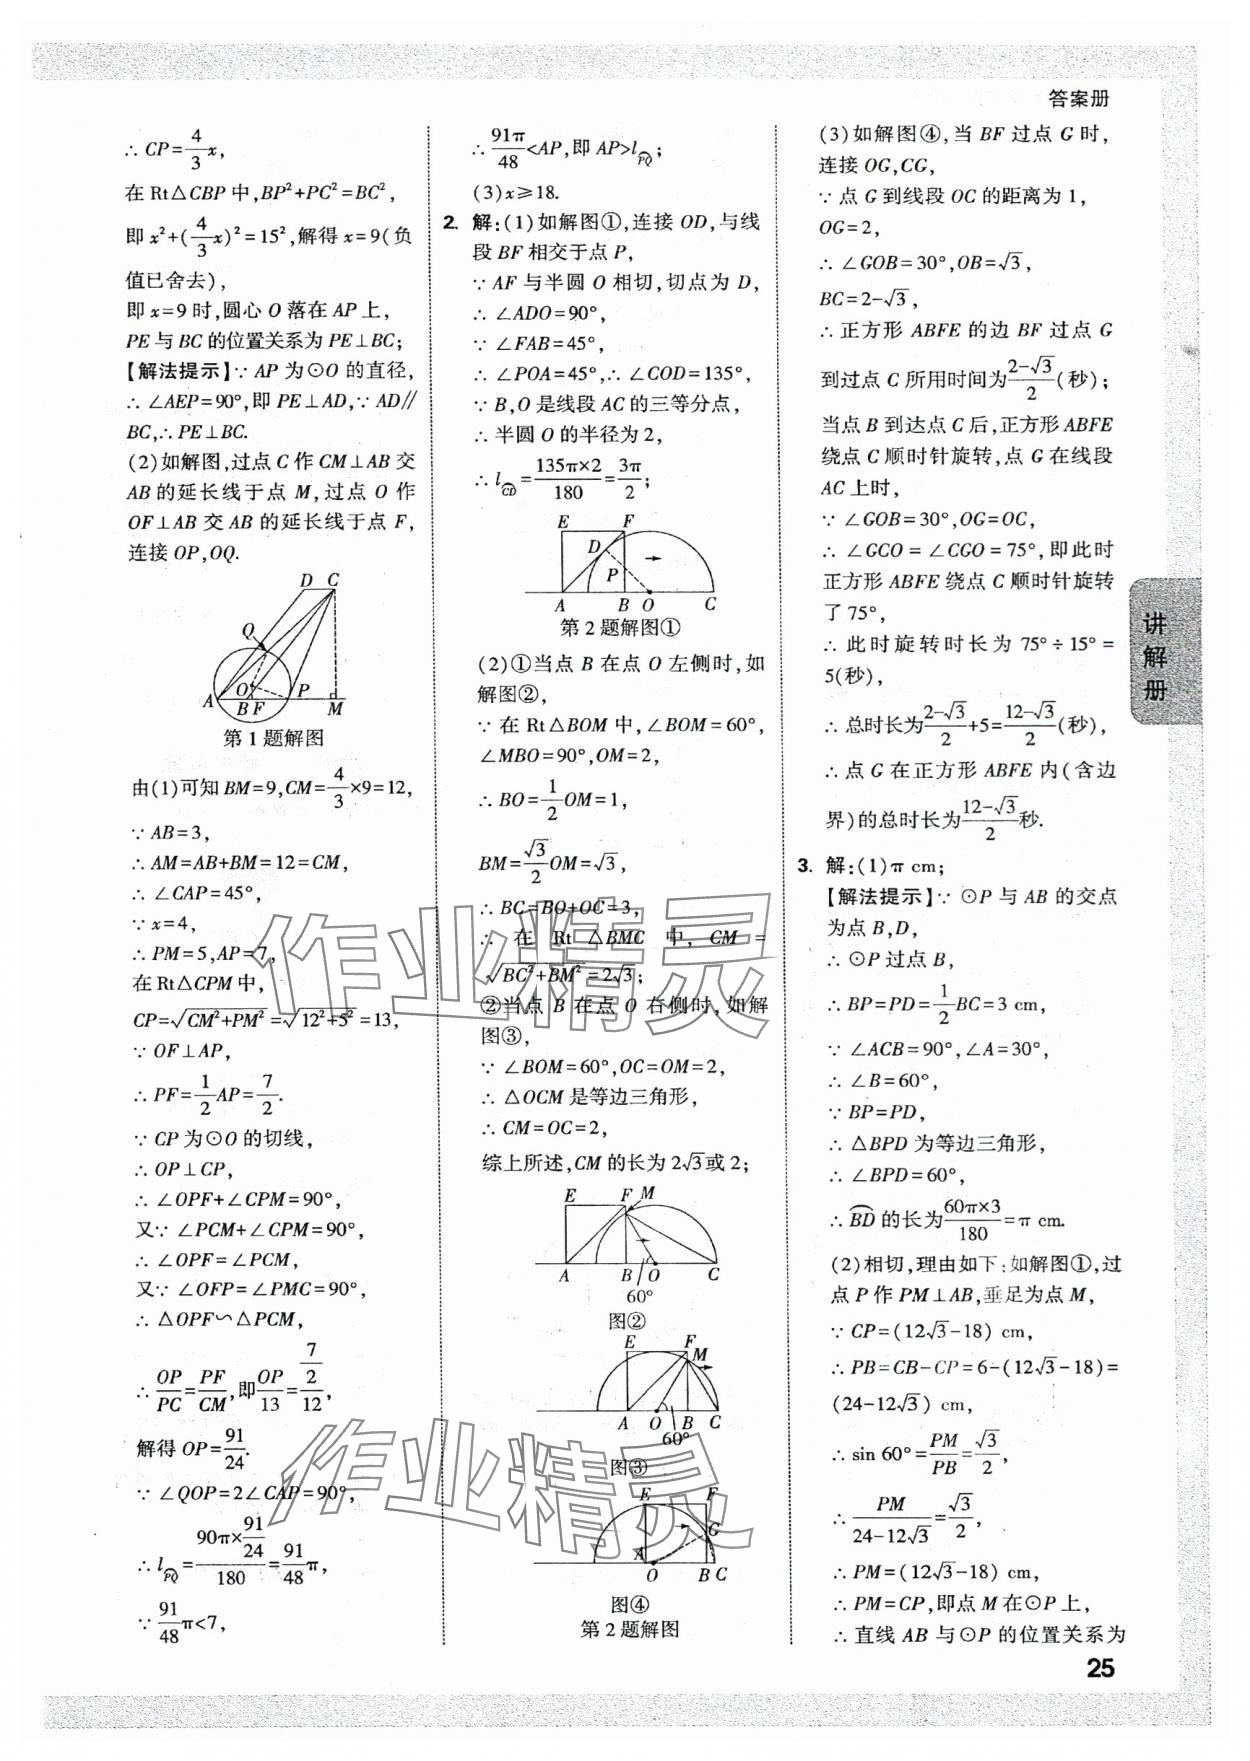 答案册
∴ CP=4/3x,
在 Rt△CBP 中,BP²+PC²=BC²,
即 x²+(4/3x)²=15²,解得 x=9(负
值已舍去),
即 x=9 时,圆心 O 落在 AP 上,
PE 与 BC 的位置关系为 PE⊥BC;
【解法提示】∵ AP 为⊙O 的直径,
∴ ∠AEP=90°,即 PE⊥AD,∵ AD∥
BC,∴ PE⊥BC.
(2)如解图,过点 C 作 CM⊥AB 交
AB 的延长线于点 M,过点 O 作
OF⊥AB 交 AB 的延长线于点 F,
连接 OP,OQ.
D C
Q
A O P
B F M
第 1 题解图
由(1)可知 BM=9,CM=4/3×9=12,
∵ AB=3,
∴ AM=AB+BM=12=CM,
∴ ∠CAP=45°,
∵ x=4,
∴ PM=5,AP=7,
在 Rt△CPM 中,
CP=√(CM²+PM²)=√(12²+5²)=13,
∵ OF⊥AP,
∴ PF=1/2AP=7/2.
∵ CP 为⊙O 的切线,
∴ OP⊥CP,
∴ ∠OPF+∠CPM=90°,
又∵ ∠PCM+∠CPM=90°,
∴ ∠OPF=∠PCM,
又∵ ∠OFP=∠PMC=90°,
∴ △OPF∽△PCM,
∴ OP/PC=PF/CM,即OP/13=(7/2)/12,
解得 OP=91/24.
∵ ∠QOP=2∠CAP=90°,
∴ l⌒PQ=(90π×91/24)/180=91/48π,
∵ 91/48π<7,
∴ 91π/48<AP,即 AP>l⌒PQ;
(3)x≥18.
2. 解:(1)如解图①,连接 OD,与线
段 BF 相交于点 P,
∵ AF 与半圆 O 相切,切点为 D,
∴ ∠ADO=90°,
∵ ∠FAB=45°,
∴ ∠POA=45°,∴ ∠COD=135°,
∵ B,O 是线段 AC 的三等分点,
∴ 半圆 O 的半径为 2,
∴ l⌒CD=135π×2/180=3π/2;
E F
D
P
A B O C
第 2 题解图①
(2)①当点 B 在点 O 左侧时,如
解图②,
∵ 在 Rt△BOM 中,∠BOM=60°,
∠MBO=90°,OM=2,
∴ BO=1/2OM=1,
BM=√3/2OM=√3,
∴ BC=BO+OC=3,
∴ 在 Rt △BMC 中, CM =
√(BC²+BM²)=2√3;
②当点 B 在点 O 右侧时,如解
图③,
∵ ∠BOM=60°,OC=OM=2,
∴ △OCM 是等边三角形,
∴ CM=OC=2,
综上所述,CM 的长为 2√3或 2;
E F M
A B O C
60°
图②
E F
M
A O B C
60°
图③
E F
G
A
O B C
图④
第 2 题解图
(3)如解图④,当 BF 过点 G 时,
连接 OG,CG,
∵ 点 G 到线段 OC 的距离为 1,
OG=2,
∴ ∠GOB=30°,OB=√3,
BC=2-√3,
∴ 正方形 ABFE 的边 BF 过点 G
到过点 C 所用时间为(2-√3)/2(秒);
当点 B 到达点 C 后,正方形 ABFE
绕点 C 顺时针旋转,点 G 在线段
AC 上时,
∵ ∠GOB=30°,OG=OC,
∴ ∠GCO=∠CGO=75°,即此时
正方形 ABFE 绕点 C 顺时针旋转
了 75°,
∴ 此时旋转时长为 75°÷15°=
5(秒),
∴ 总时长为(2-√3)/2+5=(12-√3)/2(秒),
∴ 点 G 在正方形 ABFE 内(含边
界)的总时长为(12-√3)/2秒.
3. 解:(1)π cm;
【解法提示】∵ ⊙P 与 AB 的交点
为点 B,D,
∴ ⊙P 过点 B,
∴ BP=PD=1/2BC=3 cm,
∵ ∠ACB=90°,∠A=30°,
∴ ∠B=60°,
∵ BP=PD,
∴ △BPD 为等边三角形,
∴ ∠BPD=60°,
∴ ⌒BD 的长为60π×3/180=π cm.
(2)相切,理由如下:如解图①,过
点 P 作 PM⊥AB,垂足为点 M,
∵ CP=(12√3-18) cm,
∴ PB=CB-CP=6-(12√3-18)=
(24-12√3) cm,
∴ sin 60°=PM/PB=√3/2,
∴ PM/(24-12√3)=√3/2,
∴ PM=(12√3-18) cm,
∴ PM=CP,即点 M 在⊙P 上,
∴ 直线 AB 与⊙P 的位置关系为
讲解册
25
作业精灵
作业精灵